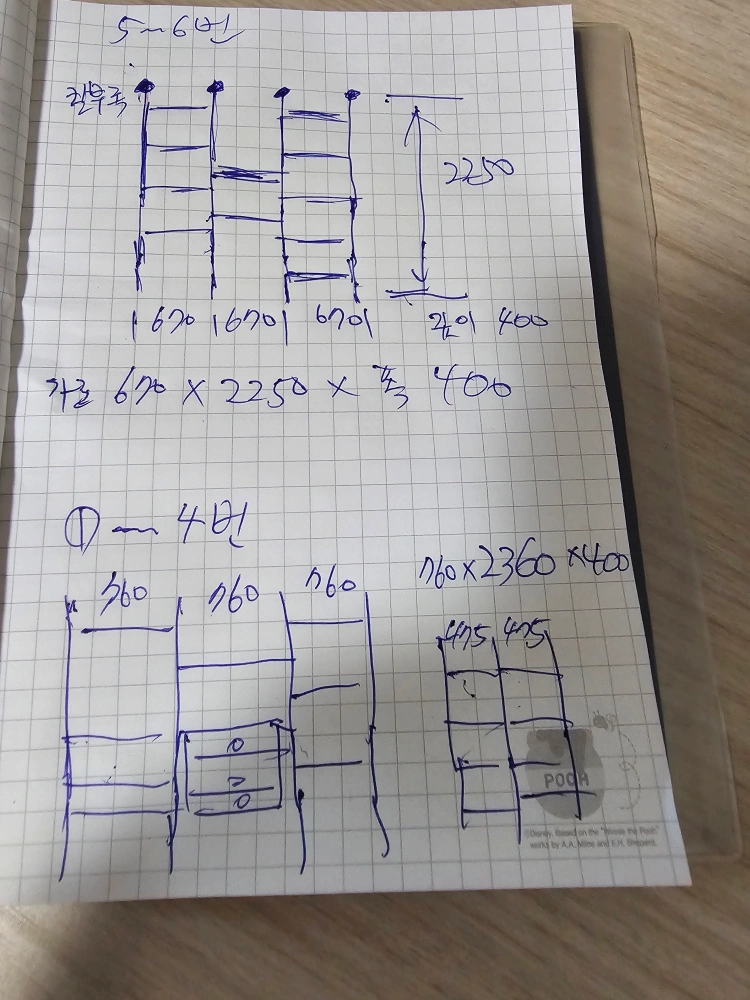 5~6번
2250
670 670 670 깊이 400
가로 670 × 2250 × 폭 400
① ~ 4번
760 760 760
760×2360×400
475 475
0
0
POOH
©Disney. Based on the "Winnie the Pooh"
works by A.A. Milne and E.H. Shepard.